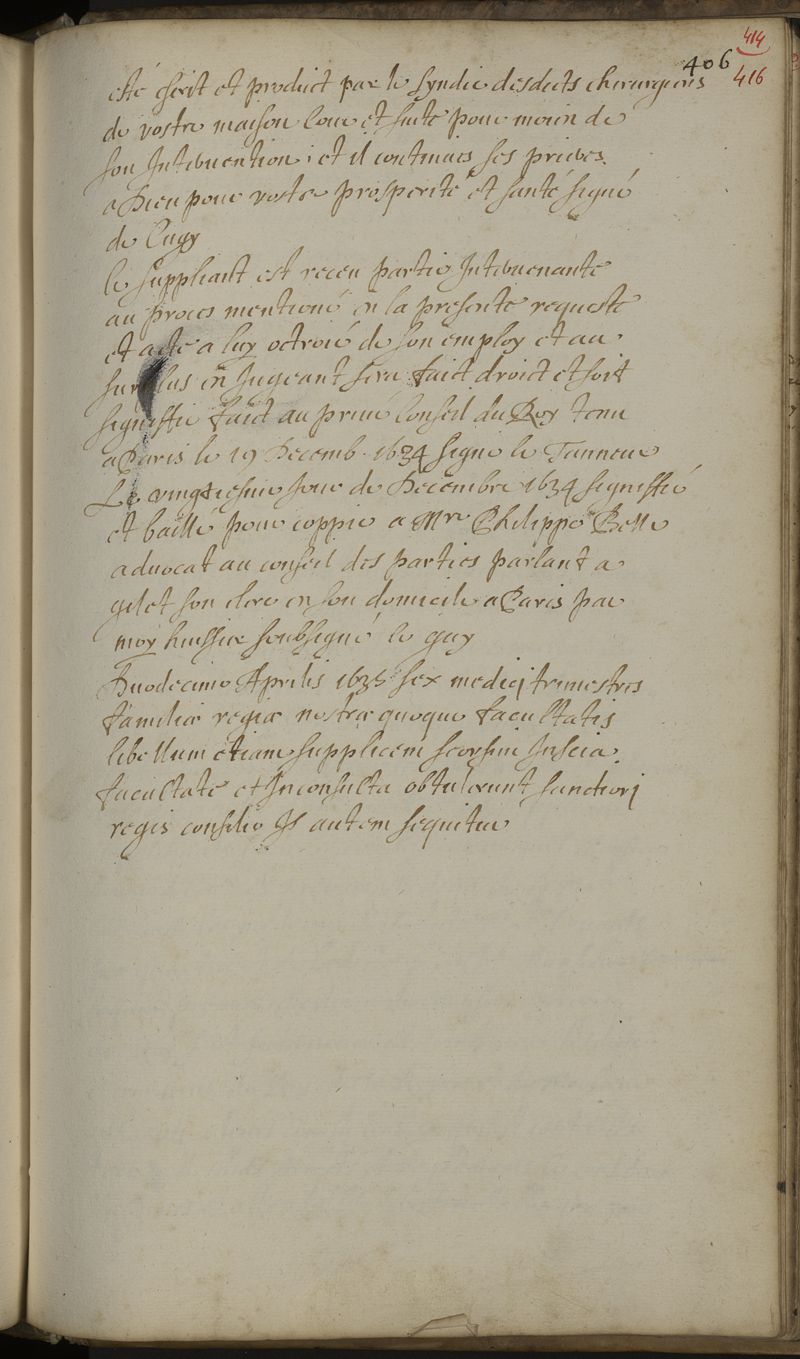 414
406
416
esté escrit et produict par le syndic desdicts chirurgiens
de vostre maison et suite pour moien de
son Intervention; et il continuera ses prieres
a Dieu pour vostre prosperité et santé signé
de Cugy
le suppliant est receu partie Intervenante
au proces mentioné en la presente requeste
et acte a luy octroié de son employ et au
surplus en Jugeant sera faict droict et soit
signiffié faict au privé Conseil du Roy tenu
a Paris le 19 Decemb. 1634 signé le Tanneur
Le vingtiesme jour de Decembre 1634 signiffié
et baillé pour coppie a Mre Philippe Belle
advocat au conseil des parties parlant a
son clerc en son domicile a Paris par
moy huissier soubsigné le guy
Duodecimo Aprilis 1635 sex medici trimestres
familiæ regiæ nostræ quoque facultatis
libellum etiam supplicem seorsim Inscia
facultate et Inconsulta obtulerunt sanctiori
regis consilio Is autem sequitur